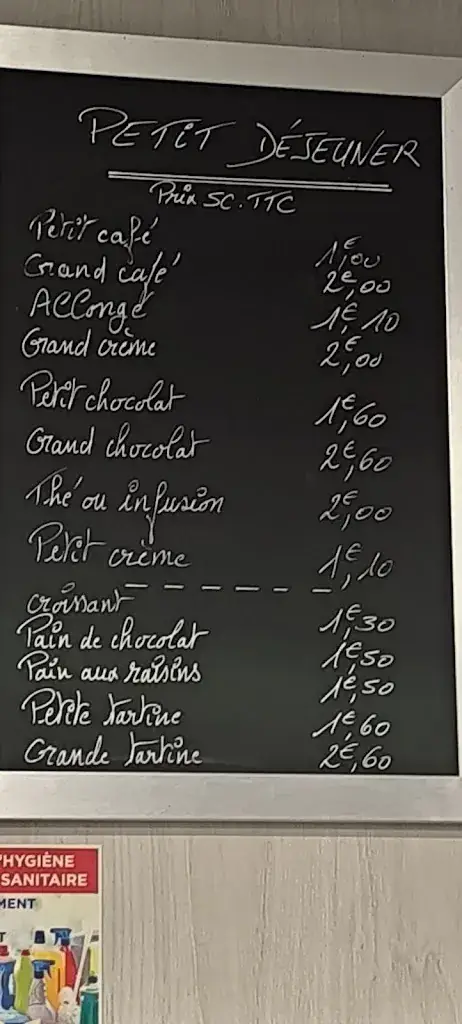 PETIT DÉJEUNER
Prix SC. TTC
Petit café 1€,00
Grand café 2€,00
Allongé 1€,10
Grand crème 2€,00
Petit chocolat 1€,60
Grand chocolat 2€,60
Thé ou infusion 2€,00
Petit crème 1€,10
croissant 1€,30
Pain de chocolat 1€,50
Pain aux raisins 1€,50
Petite tartine 1€,60
Grande tartine 2€,60
'HYGIÈNE
SANITAIRE
MENT
T